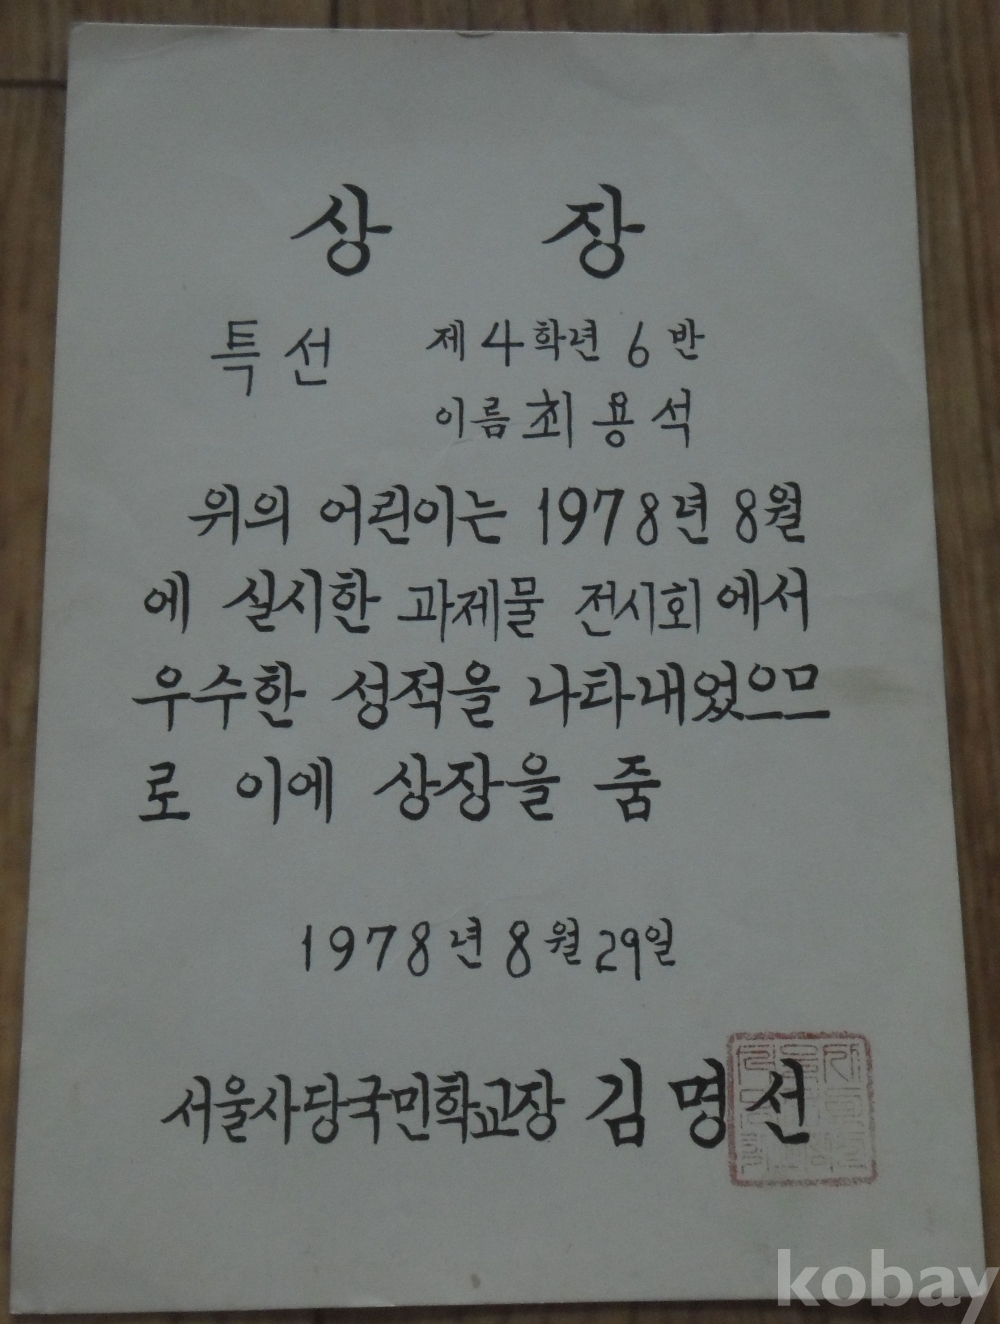 상 장
특선 제4학년 6반
이름 최용석
위의 어린이는 1978년 8월
에 실시한 과제물 전시회에서
우수한 성적을 나타내었으므
로 이에 상장을 줌
1978년 8월 29일
서울사당국민학교장 김명선
kobay